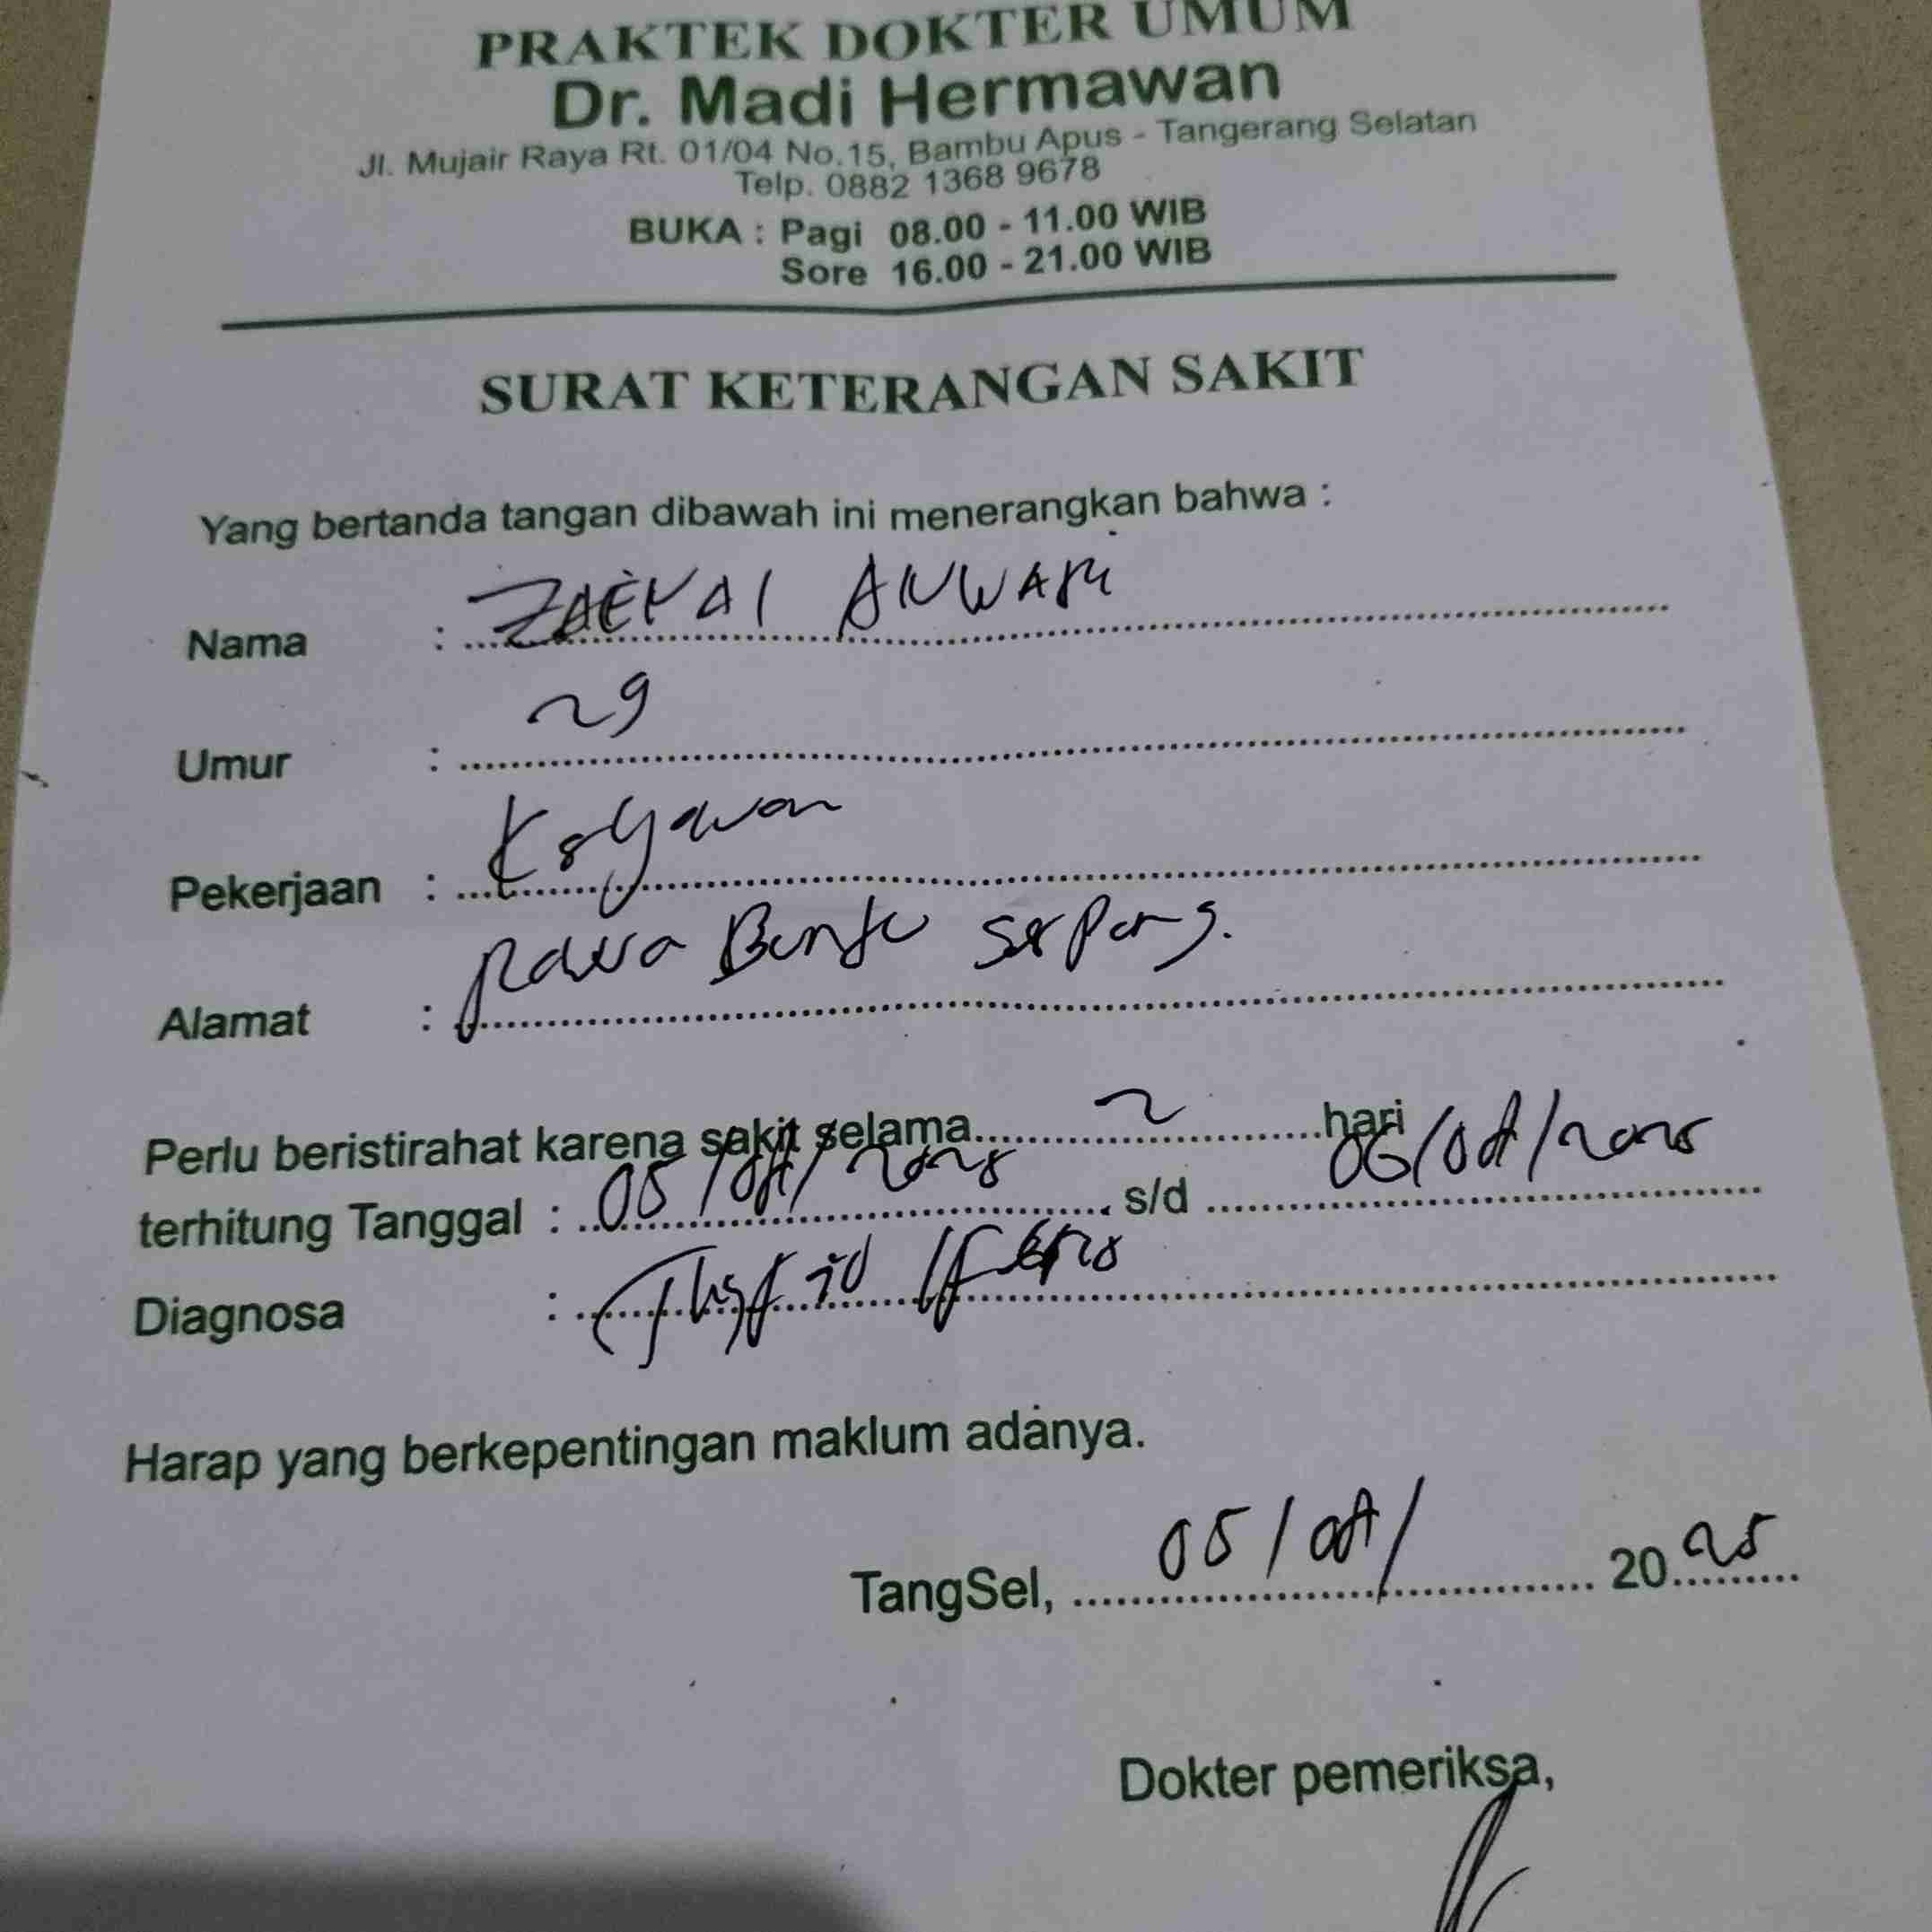 PRAKTEK DOKTER UMUM
Dr. Madi Hermawan
Jl. Mujair Raya Rt. 01/04 No.15, Bambu Apus - Tangerang Selatan
Telp. 0882 1368 9678
BUKA : Pagi 08.00 - 11.00 WIB
Sore 16.00 - 21.00 WIB
SURAT KETERANGAN SAKIT
Yang bertanda tangan dibawah ini menerangkan bahwa :
Nama : ANWAR
Umur : 29
Pekerjaan : Karyawan
Alamat : Rawa Buntu Serpong.
Perlu beristirahat karena sakit selama 2 hari
terhitung Tanggal : 05/Okt/2025 s/d 06/Okt/2025
Diagnosa :
Harap yang berkepentingan maklum adanya.
TangSel, 05/Okt/ 2025
Dokter pemeriksa,